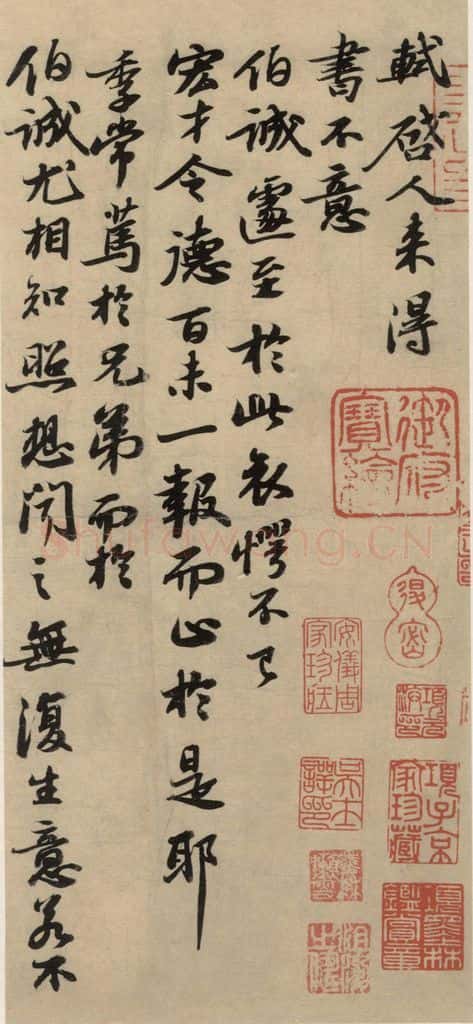 軾啓人来得
書不意
伯誠遽至於此哀愕不已
宏才令德百未一報而止於是耶
季常篤於兄弟而於
伯誠尤相知照想聞之無復生意若不
御府
寶繪
安儀周
家珍藏
項元
汴印
項子京
家珍藏
項墨林
鑑賞章
shufawang.CN